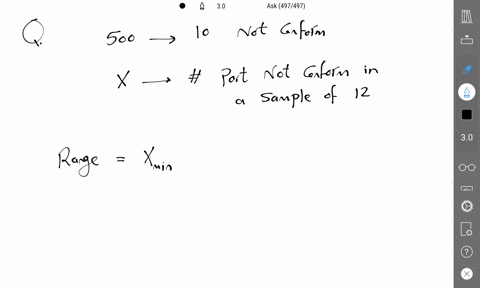 3.0 Ask (497/497)
Q. 500 → 10 Not Conform
X → # Part Not Conform in
a sample of 12
3.0
Range = Xmin